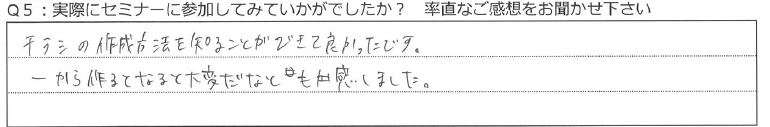 Q5：実際にセミナーに参加してみていかがでしたか？ 率直なご感想をお聞かせ下さい
チラシの作成方法を知ることができて良かったです。
一から作るとなると大変だなとも感じました。